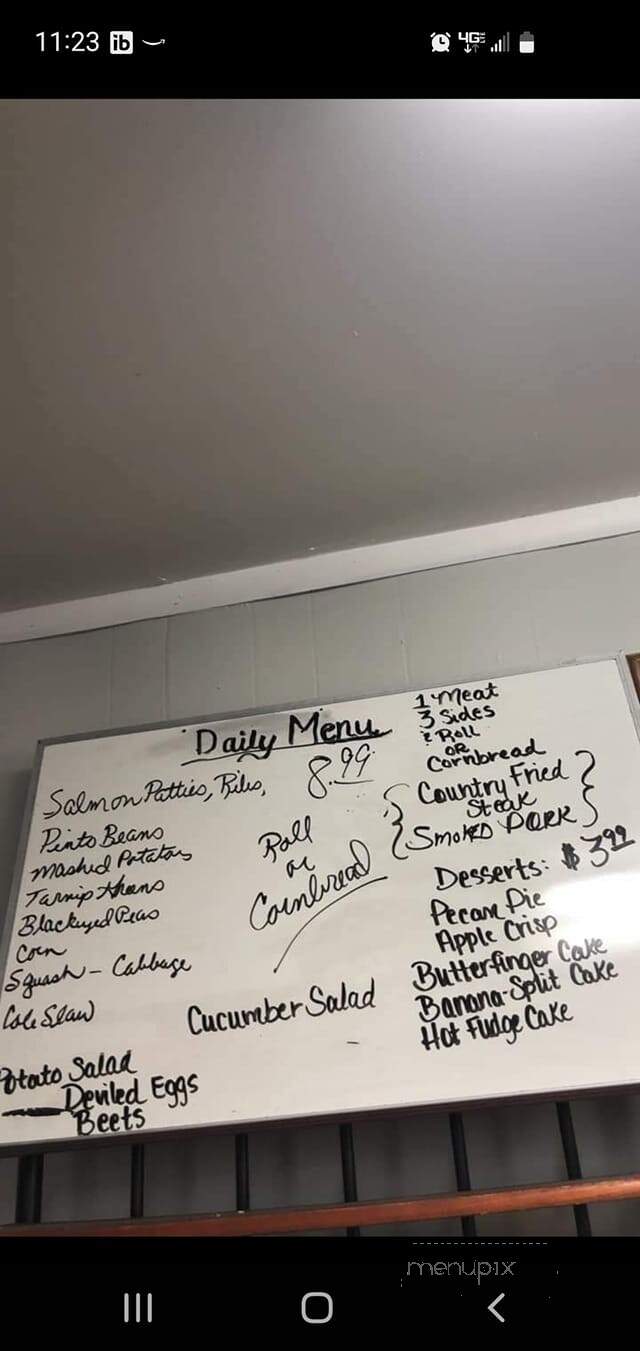 11:23
4GE
Daily Menu
8.99
Salmon Patties, Ribs,
Pinto Beans
Mashed Potatoes
Turnip Greens
Blackeyed Peas
Corn
Squash - Cabbage
Cole Slaw
Potato Salad
Deviled Eggs
Beets
Roll
or
Cornbread
Cucumber Salad
1 Meat
3 Sides
& Roll
OR
Cornbread
Country Fried
Steak
Smoked PORK
Desserts: $3.99
Pecan Pie
Apple Crisp
Butterfinger Cake
Banana-Split Cake
Hot Fudge Cake
menupix